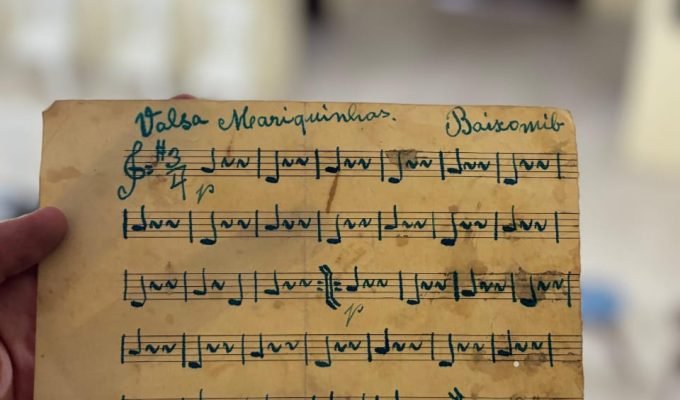 Valsa Mariquinhas. Baixomib
3
4
p
p